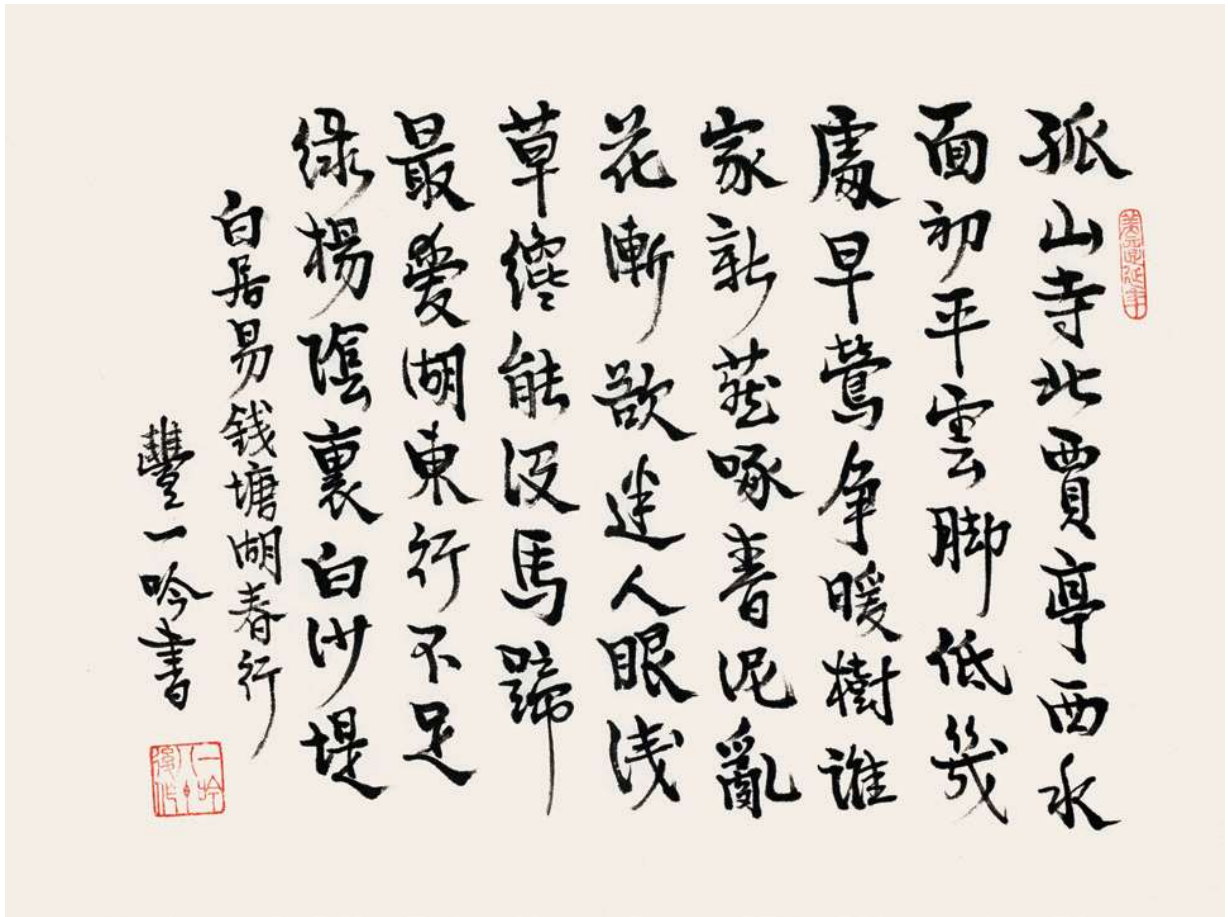 美意延年
孤山寺北賈亭西水
面初平雲脚低幾
處早鶯争暖樹誰
家新燕啄春泥亂
花漸欲迷人眼浅
草纔能没馬蹄
最愛湖東行不足
緑楊陰裏白沙堤
白居易銭塘湖春行
豐一吟書